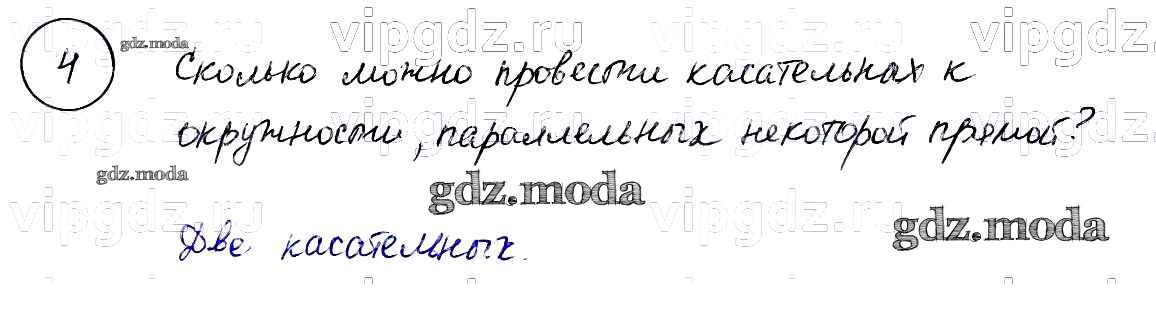 vipgdz.ru vipgdz.ru vipgdz.ru vipgdz
4 gdz.moda Сколько можно провести касательных к
vipgdz.ru vipgdz.ru vipgdz.ru vipgdz
окружности, параллельных некоторой прямой?
gdz.moda gdz.moda
vipgdz.ru vipgdz.ru vipgdz.ru vipgdz
gdz.moda
Две касательных.